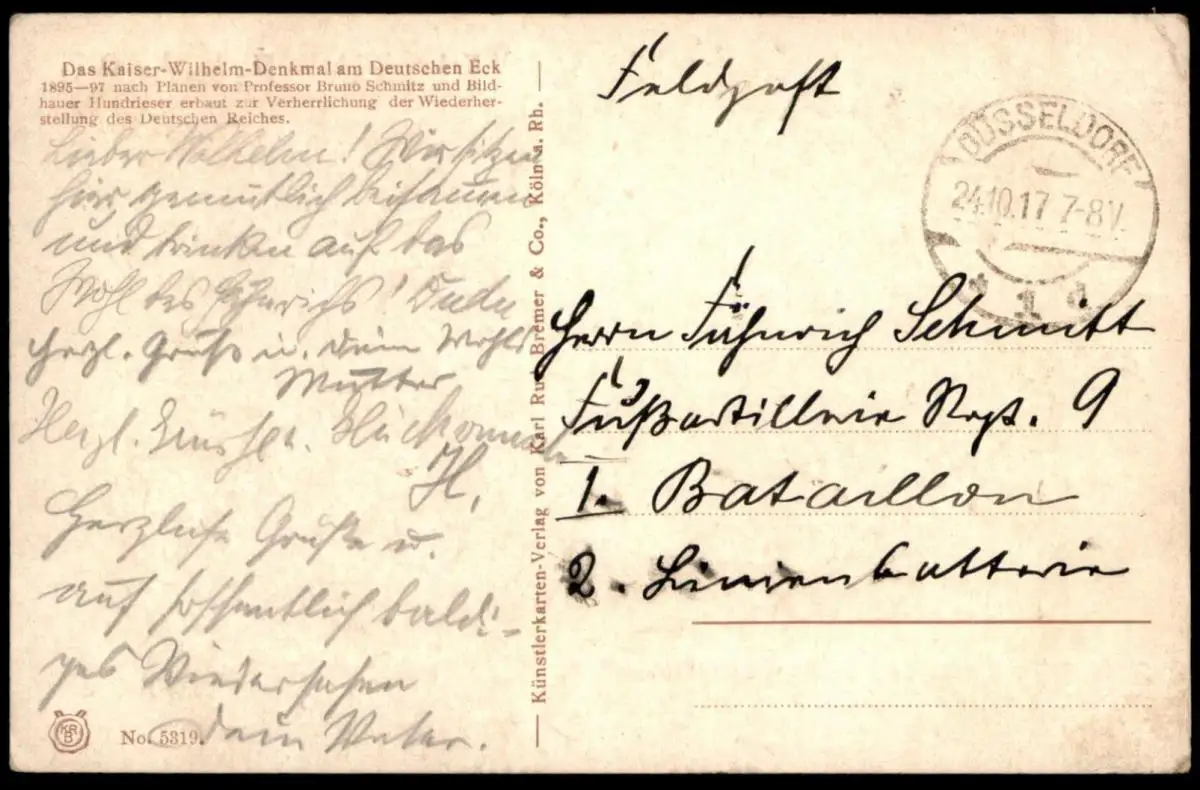 Das Kaiser-Wilhelm-Denkmal am Deutschen Eck
1895—97 nach Plänen von Professor Bruno Schmitz und Bild-
hauer Hundrieser erbaut zur Verherrlichung der Wiederher-
stellung des Deutschen Reiches.
Lieber Wilhelm! Wir sitzen
hier gemütlich beisammen
und trinken auf das
Wohl des Fähnrichs!
Herzl. Grüße u. Dein
Mutter
Herzl. Grüße
H.
Herzliche Grüße u.
auf hoffentlich baldi-
ges Wiedersehen
Dein Vater.
No. 5319.
KRB
Künstlerkarten-Verlag von Karl Rud. Bremer & Co., Köln a. Rh.
Feldpost
DÜSSELDORF
24.10.17 7-8V.
* 1 d
Herrn Fähnrich Schmitt
Fußartillerie Regt. 9
1. Bataillon
2. Linienbatterie